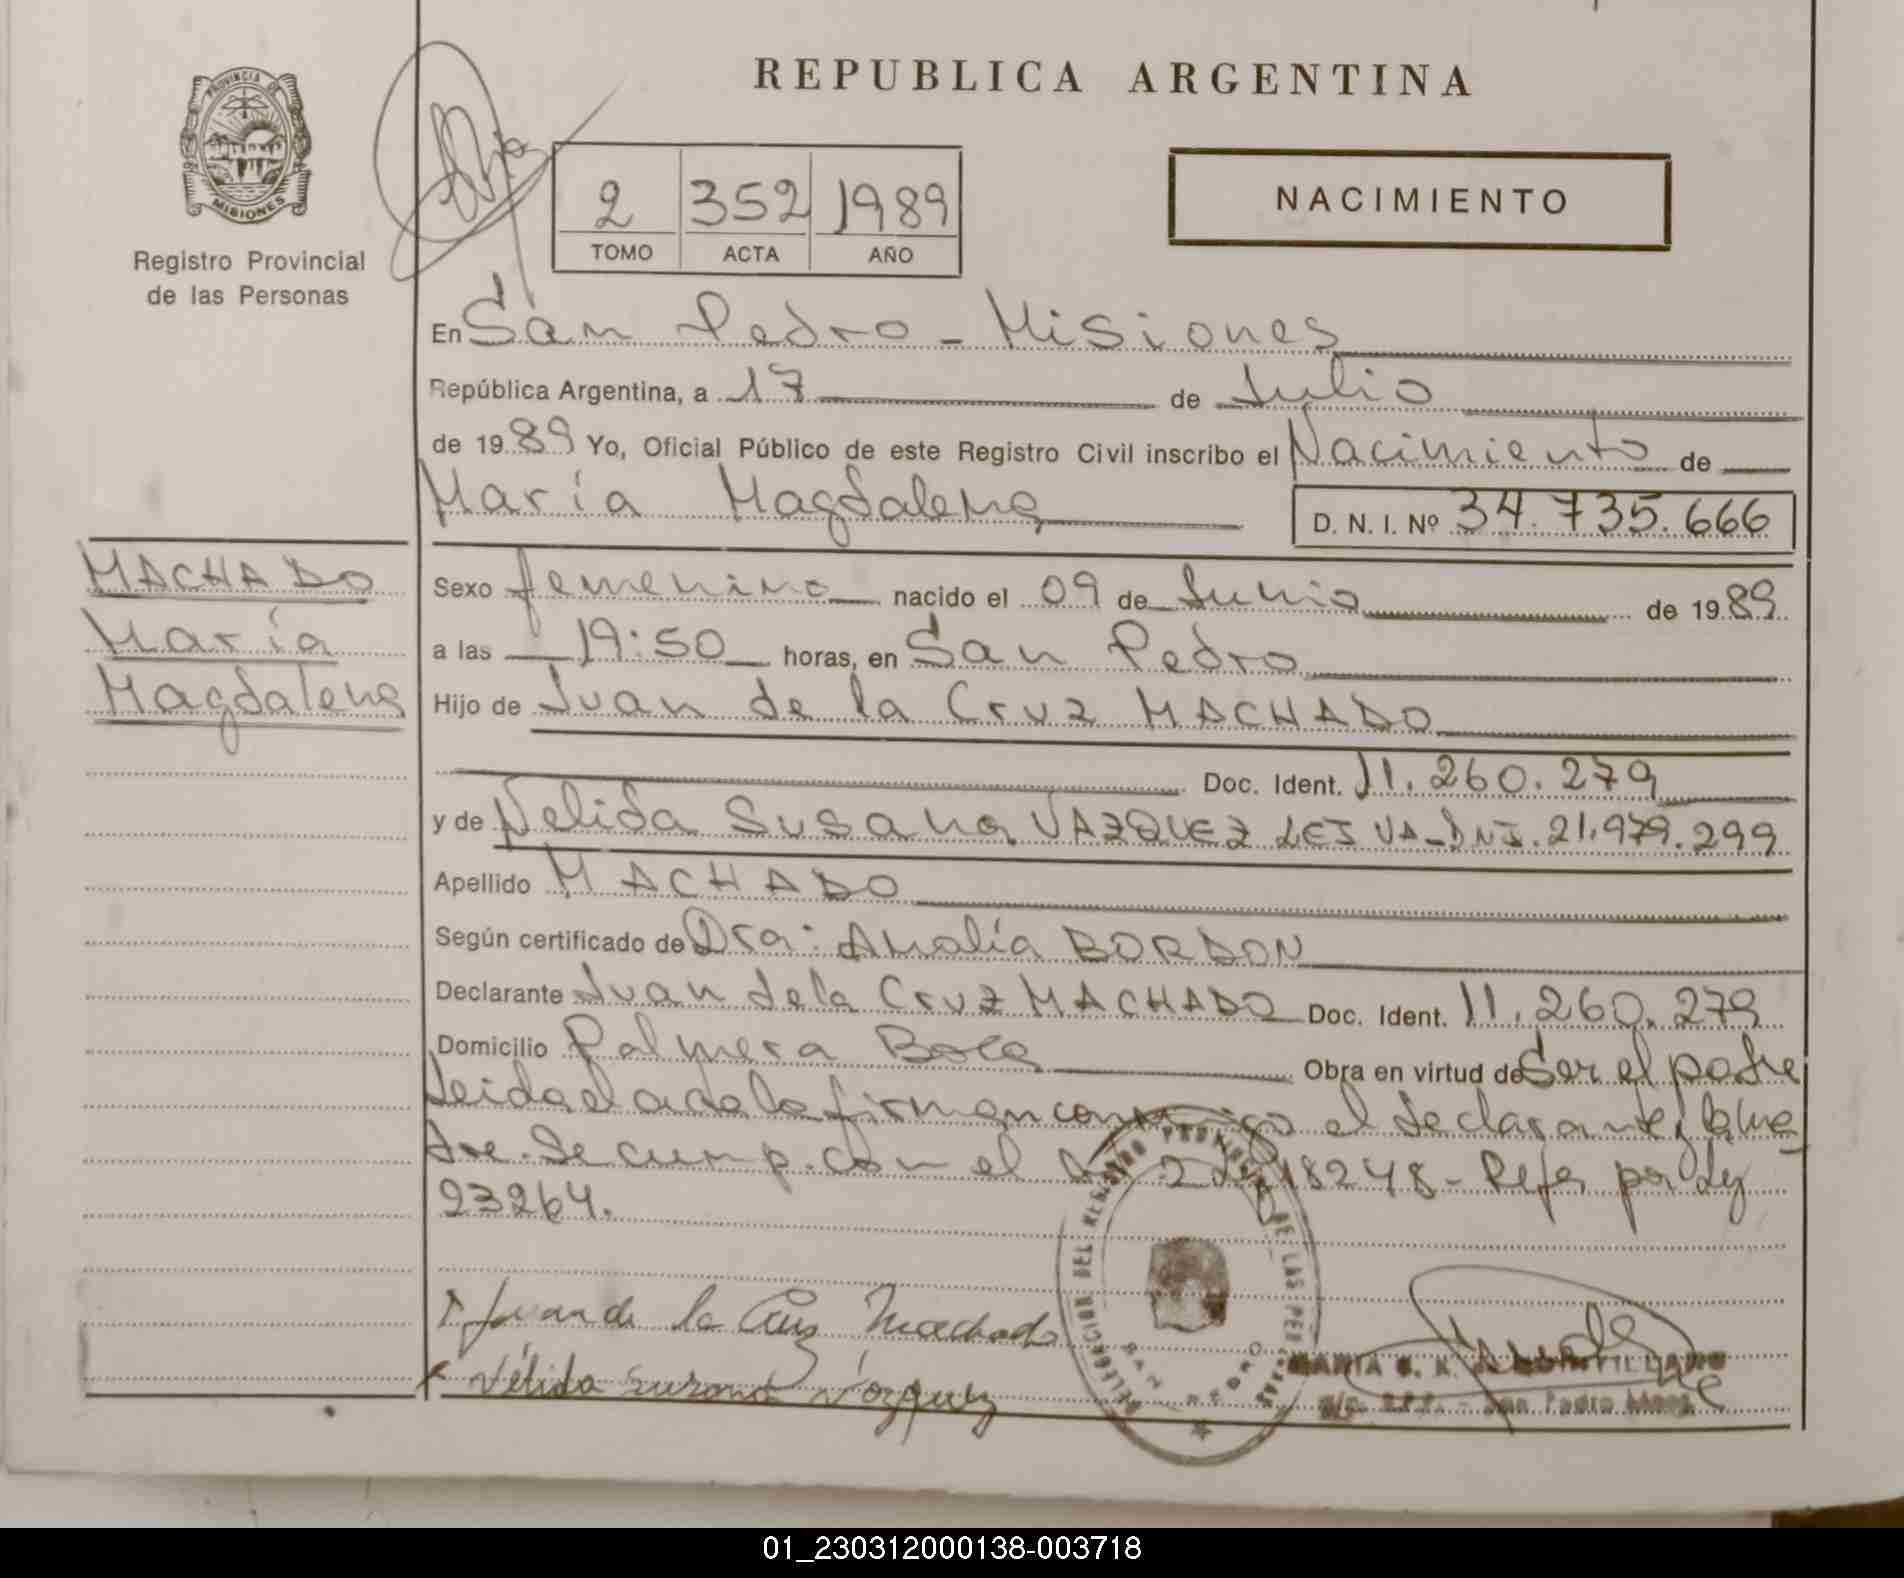 REPUBLICA ARGENTINA
PROVINCIA DE
MISIONES
Registro Provincial
de las Personas
2 352 1989
TOMO ACTA AÑO
NACIMIENTO
En San Pedro - Misiones
República Argentina, a 17 de Julio
de 1989 Yo, Oficial Público de este Registro Civil inscribo el Nacimiento de
María Magdalena
D. N. I. Nº 34.735.666
MACHADO
María
Magdalena
Sexo femenino nacido el 09 de Junio de 1989
a las 19:50 horas, en San Pedro
Hijo de Juan de la Cruz MACHADO
Doc. Ident. 11.260.279
y de Nelida Susana VAZQUEZ LEIVA - DNI. 21.979.299
Apellido MACHADO
Según certificado de Dra: Amalia BORDON
Declarante Juan de la Cruz MACHADO Doc. Ident. 11.260.279
Domicilio Palmera Boca Obra en virtud de Ser el padre
Leida el acta la firman conmigo el declarante y la ma
dre. Se cump. con el 2 18248 - Refor por Ley
23264.
Juan de la Cruz Machado
Nélida Susana Vázquez
DELEGACION DEL REGISTRO PROVINCIAL DE LAS PERSONAS
SAN PEDRO
MARIA
R.P.P. - San Pedro Mnes.
01_230312000138-003718